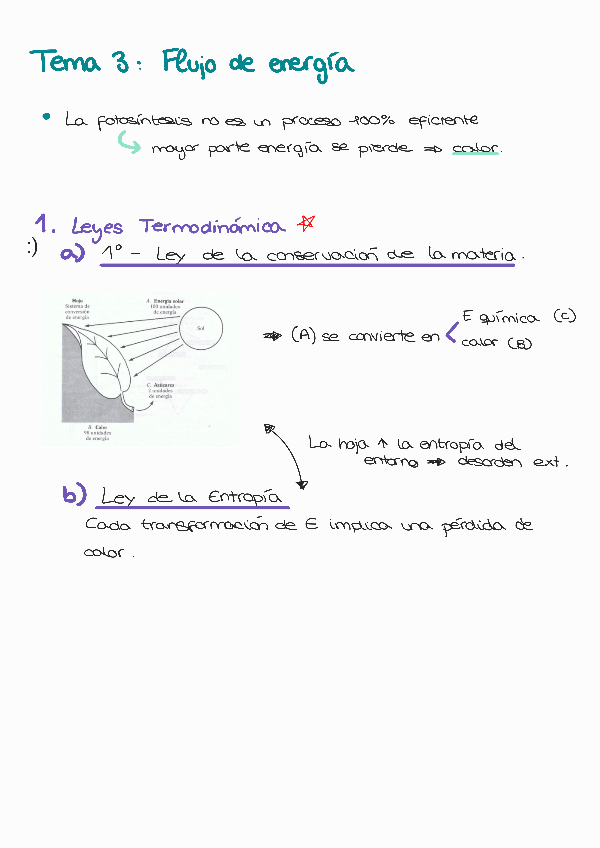 Tema 3: Flujo de energía
• La fotosíntesis no es un proceso 100% eficiente
mayor parte energía se pierde ⇒ calor.
1. Leyes Termodinámica ☆
:) a) 1º - Ley de la conservación de la materia.
Hoja
Sistema de
conversión
de energía
A. Energía solar
100 unidades
de energía
Sol
C. Azúcares
2 unidades
de energía
B. Calor
98 unidades
de energía
⇒ (A) se convierte en < E química (C)
calor (B)
La hoja ↑ la entropía del
entorno ⇒ desorden ext.
b) Ley de la Entropía
Cada transformación de E implica una pérdida de
calor.